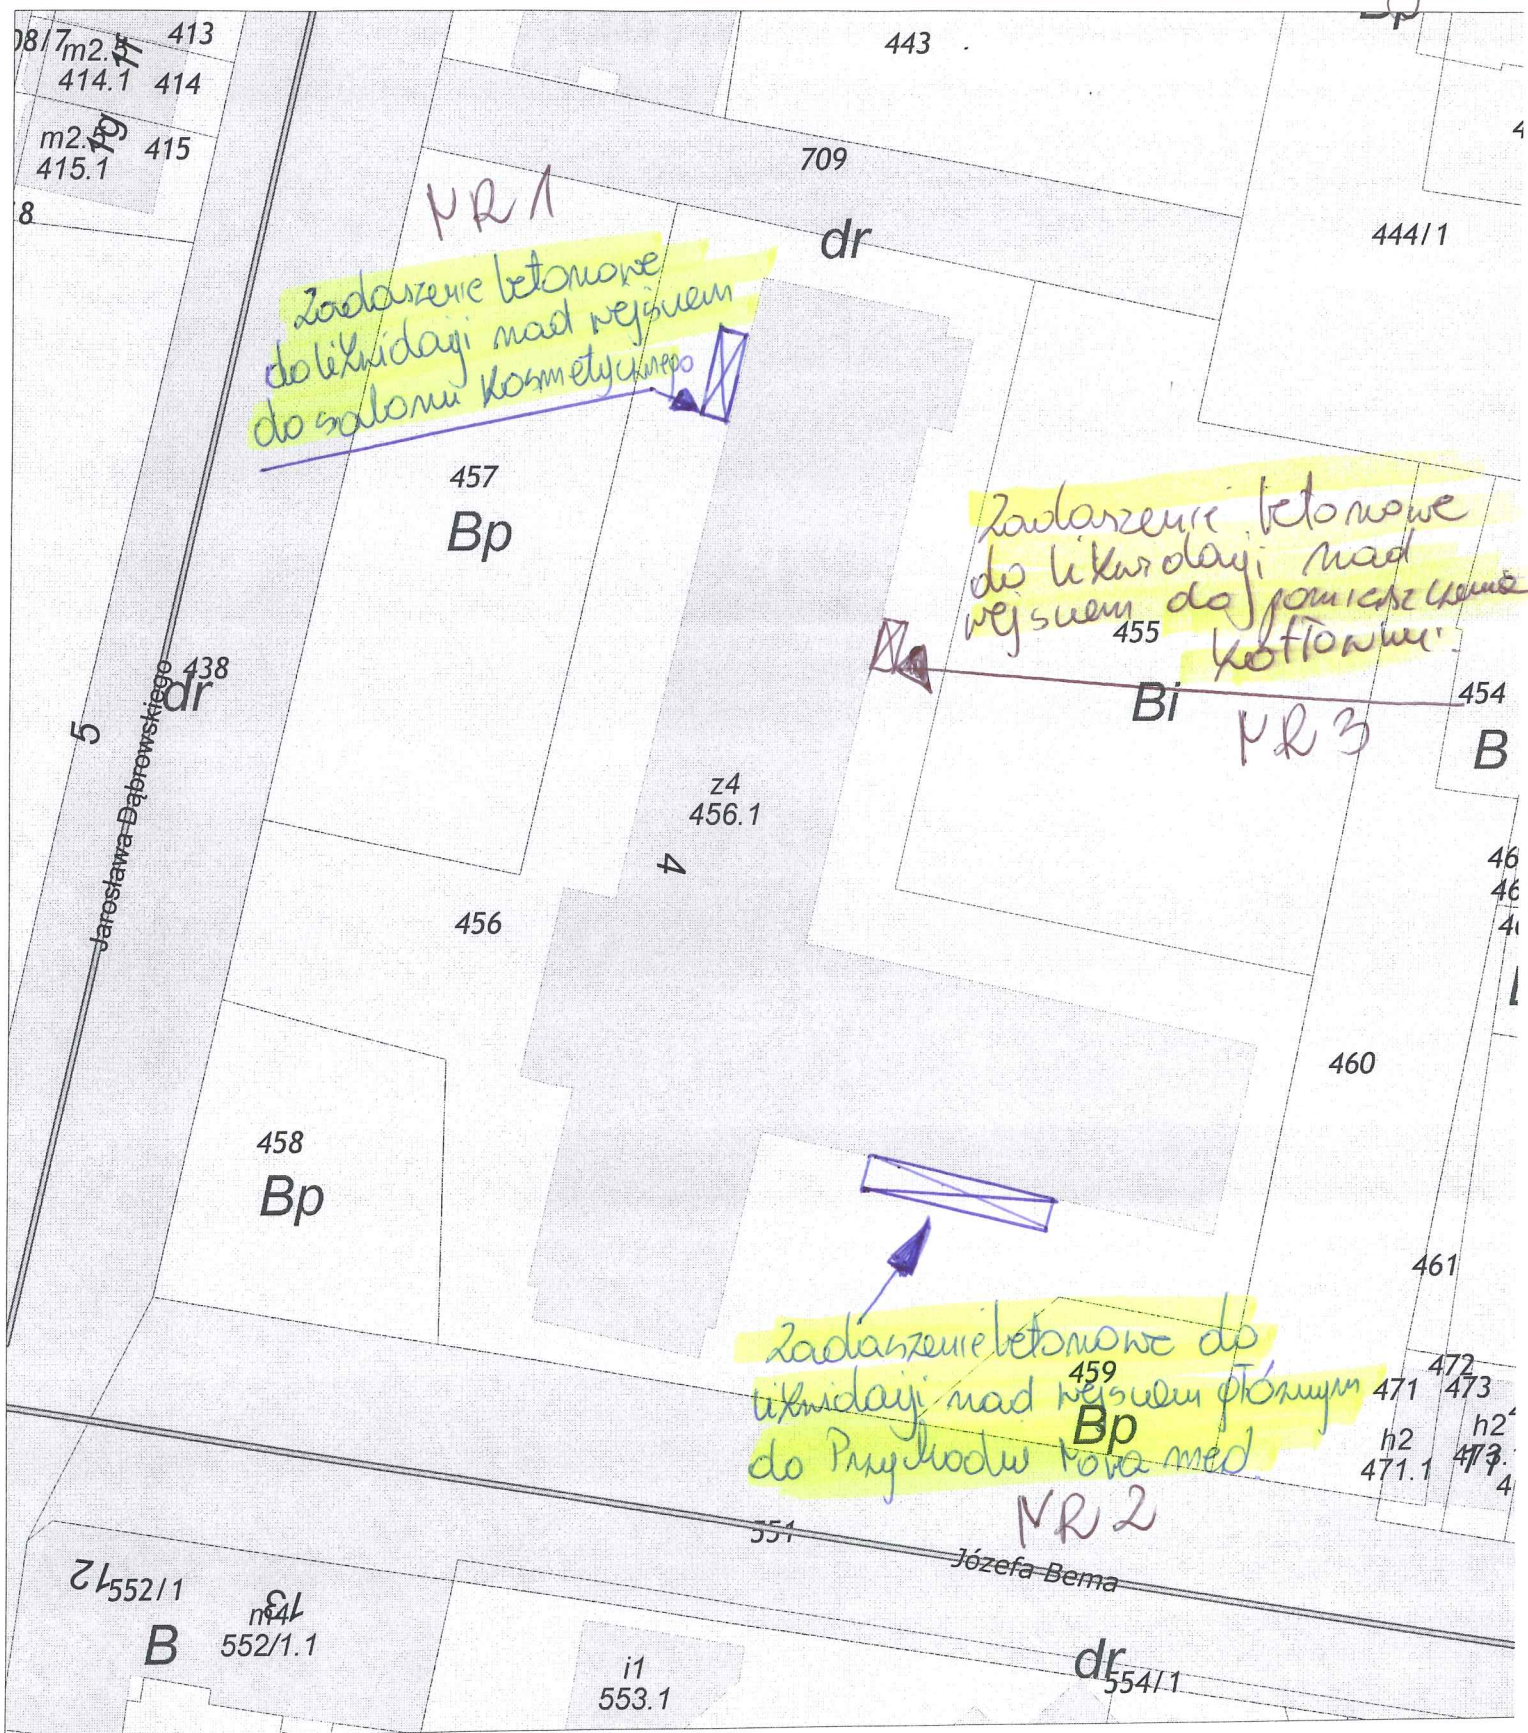 Bp
08/7
m2.
1f
413
414.1
414
m2.
1g
415
415.1
8
443
709
dr
444/1
4
NR 1
Zadaszenie betonowe
do likwidacji nad wejściem
do salonu kosmetycznego
457
Bp
Zadaszenie betonowe
do likwidacji nad
wejściem do pomieszczenia
kotłowni.
455
Bi
NR 3
454
B
438
dr
5
Jarosława Dąbrowskiego
z4
456.1
4
456
46
46
460
458
Bp
461
Zadaszenie betonowe do
likwidacji nad wejściem głównym
do Przychodni Nova med.
459
Bp
NR 2
472
471
473
h2
471.1
h2
473.
551
Józefa Bema
12
552/1
13
m4
552/1.1
B
i1
553.1
dr
554/1